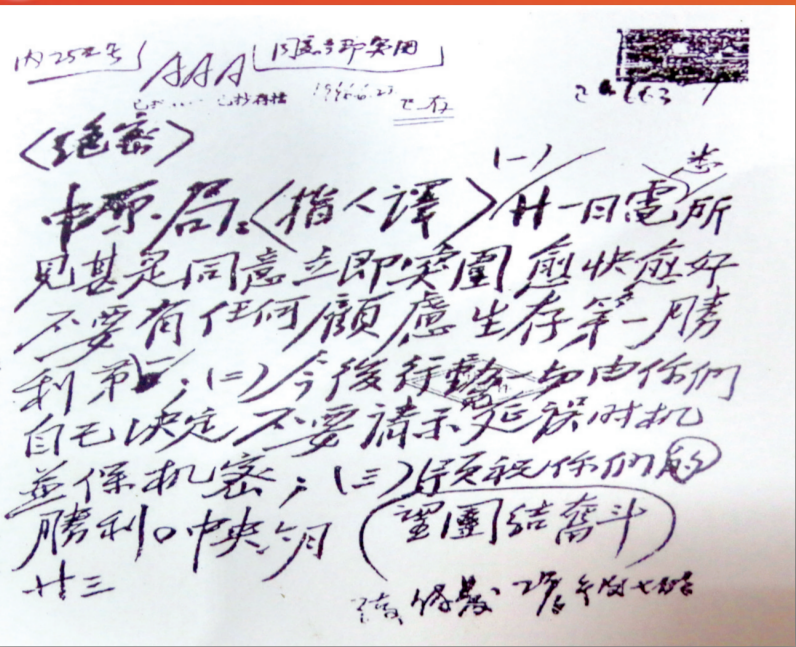 AAA 同意立即突圍
1946.6.23 已存
〈絕密〉
中原局:〈指人譯〉(一)廿一日電悉所
見甚是同意立即突圍愈快愈好
不要有任何顧慮生存第一勝
利第二,(二)今後行動一切由你們
自己決定不要請示延誤时机
並保机密,(三)預祝你們的
勝利。中央六月(望團結奮斗)
廿三